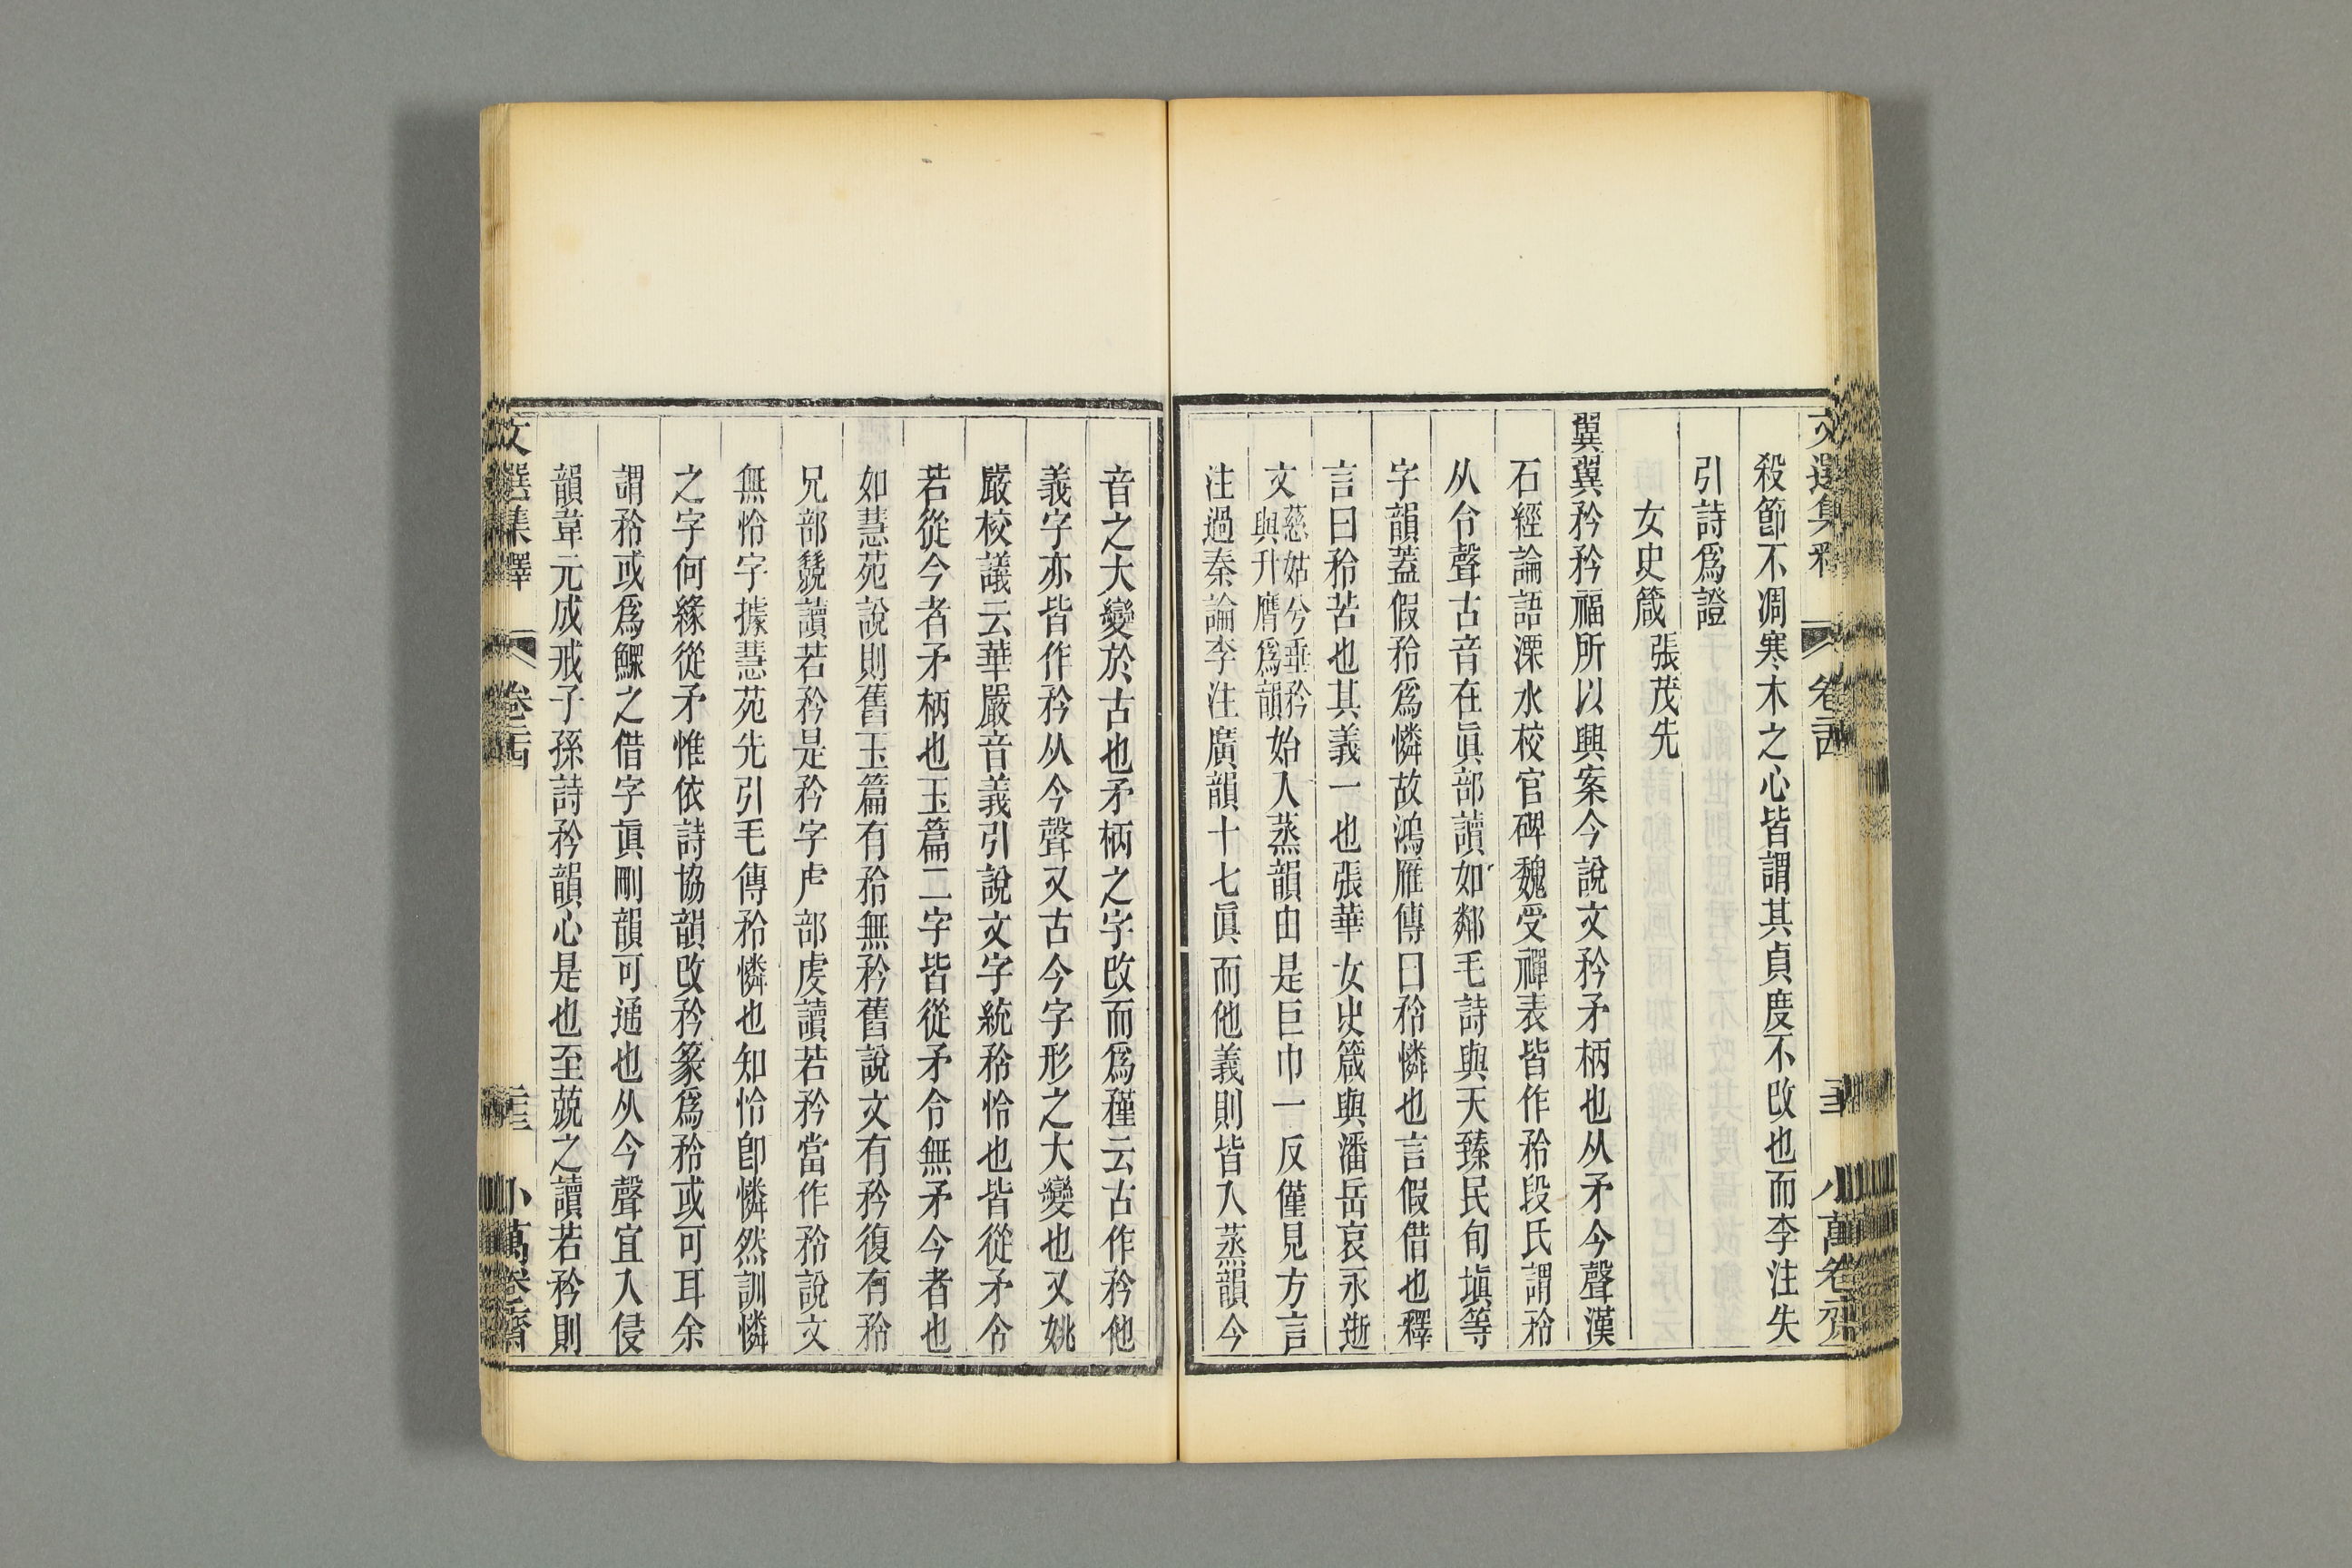 殺節不凋寒木之心皆謂其貞度不改也而李注失
引詩爲證
女史箴張茂先
翼翼矜矜福所以興案今說文矜矛柄也从矛今聲漢
石經論語溧水校官碑魏受禪表皆作矝段氏謂矝
从令聲古音在眞部讀如鄰毛詩與天臻民旬塡等
字韻蓋假矝爲憐故鴻雁傳曰矝憐也言假借也釋
言曰矝苦也其義一也張華女史箴與潘岳哀永逝
文慈姑兮垂矜與升膺爲韻始入蒸韻由是巨巾一反僅見方言
注過秦論李注廣韻十七眞而他義則皆入蒸韻今
音之大變於古也矛柄之字改而爲䅖云古作矜他
義字亦皆作矜从今聲又古今字形之大變也又姚
嚴校議云華嚴音義引說文字統矝怜也皆從矛令
若從今者矛柄也玉篇二字皆從矛令無矛今者也
如慧苑說則舊玉篇有矝無矜舊說文有矜復有矝
兄部兟讀若矜是矜字虍部虔讀若矜當作矝說文
無怜字據慧苑先引毛傳矝憐也知怜卽憐然訓憐
之字何緣從矛惟依詩協韻改矜篆爲矝或可耳余
謂矝或爲鰥之借字眞刪韻可通也从今聲宜入侵
韻韋元成戒子孫詩矜韻心是也至兢之讀若矜則
文選集釋 卷二十四 小萬卷齋